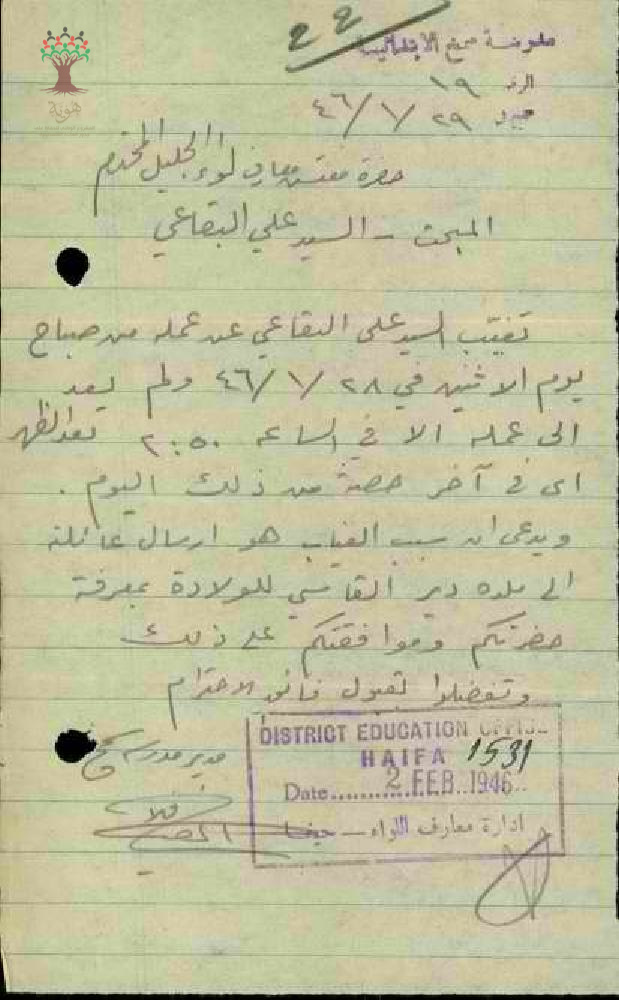 22
مدرسة سحماتا الابتدائية
الرقم ١٩
٤٦/١/٢٩
هوية
حضرة مفتش معارف لواء الجليل المحترم
المبحث - السيد علي البقاعي
تغيّب السيد علي البقاعي عن عمله من صباح
يوم الاثنين في ٤٦/١/٢٨ ولم يعد
الى عمله الا في الساعة ٢:٥٠ بعد الظهر
اي في آخر حصة من ذلك اليوم .
ويدعي ان سبب الغياب هو ارسال عائلته
الى بلده دير القاسي للولادة بمعرفة
حضرتكم وموافقتكم على ذلك
وتفضلوا بقبول فائق الاحترام
مدير مدرسة
DISTRICT EDUCATION OFFICE
HAIFA 1531
Date 2 FEB 1946
ادارة معارف اللواء - حيفا